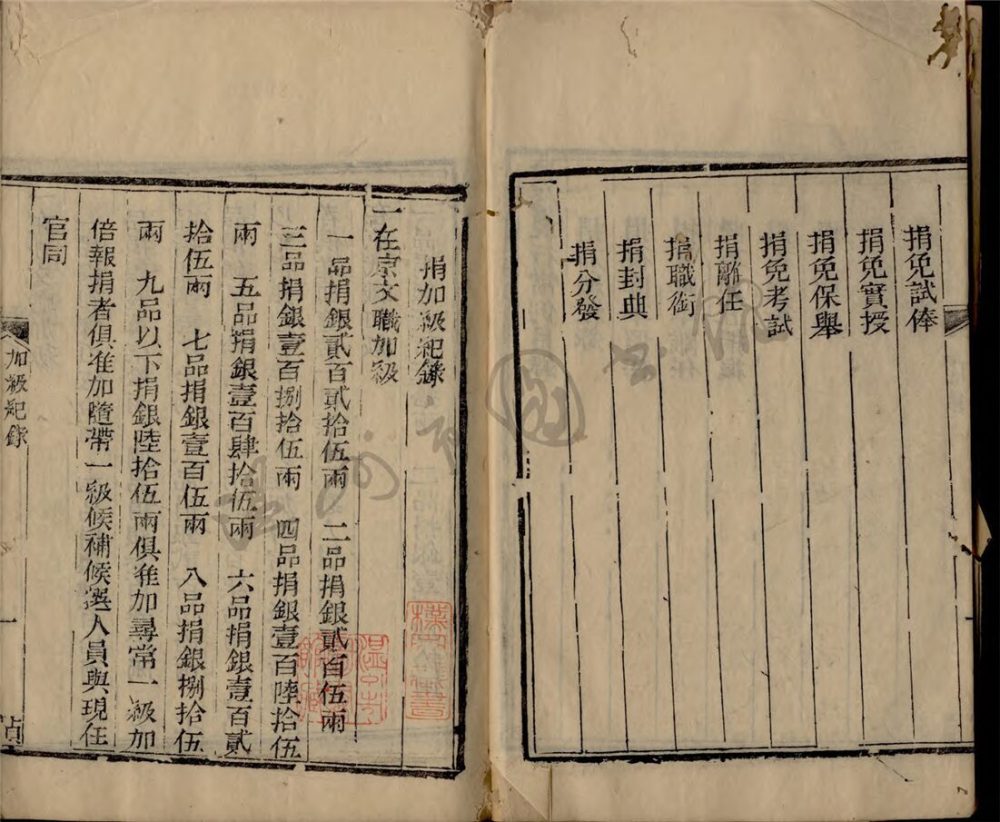 捐免試俸
捐免實授
捐免保舉
捐免考試
捐離任
捐職銜
捐封典
捐分發
捐加級紀錄
一在京文職加級
一品捐銀貳百貳拾伍兩　二品捐銀貳百伍兩
三品捐銀壹百捌拾伍兩　四品捐銀壹百陸拾伍
兩　五品捐銀壹百肆拾伍兩　六品捐銀壹百貳
拾伍兩　七品捐銀壹百伍兩　八品捐銀捌拾伍
兩　九品以下捐銀陸拾伍兩俱准加尋常一級加
倍報捐者俱准加隨帶一級候補候選人員與現任
官同
加級紀錄
一